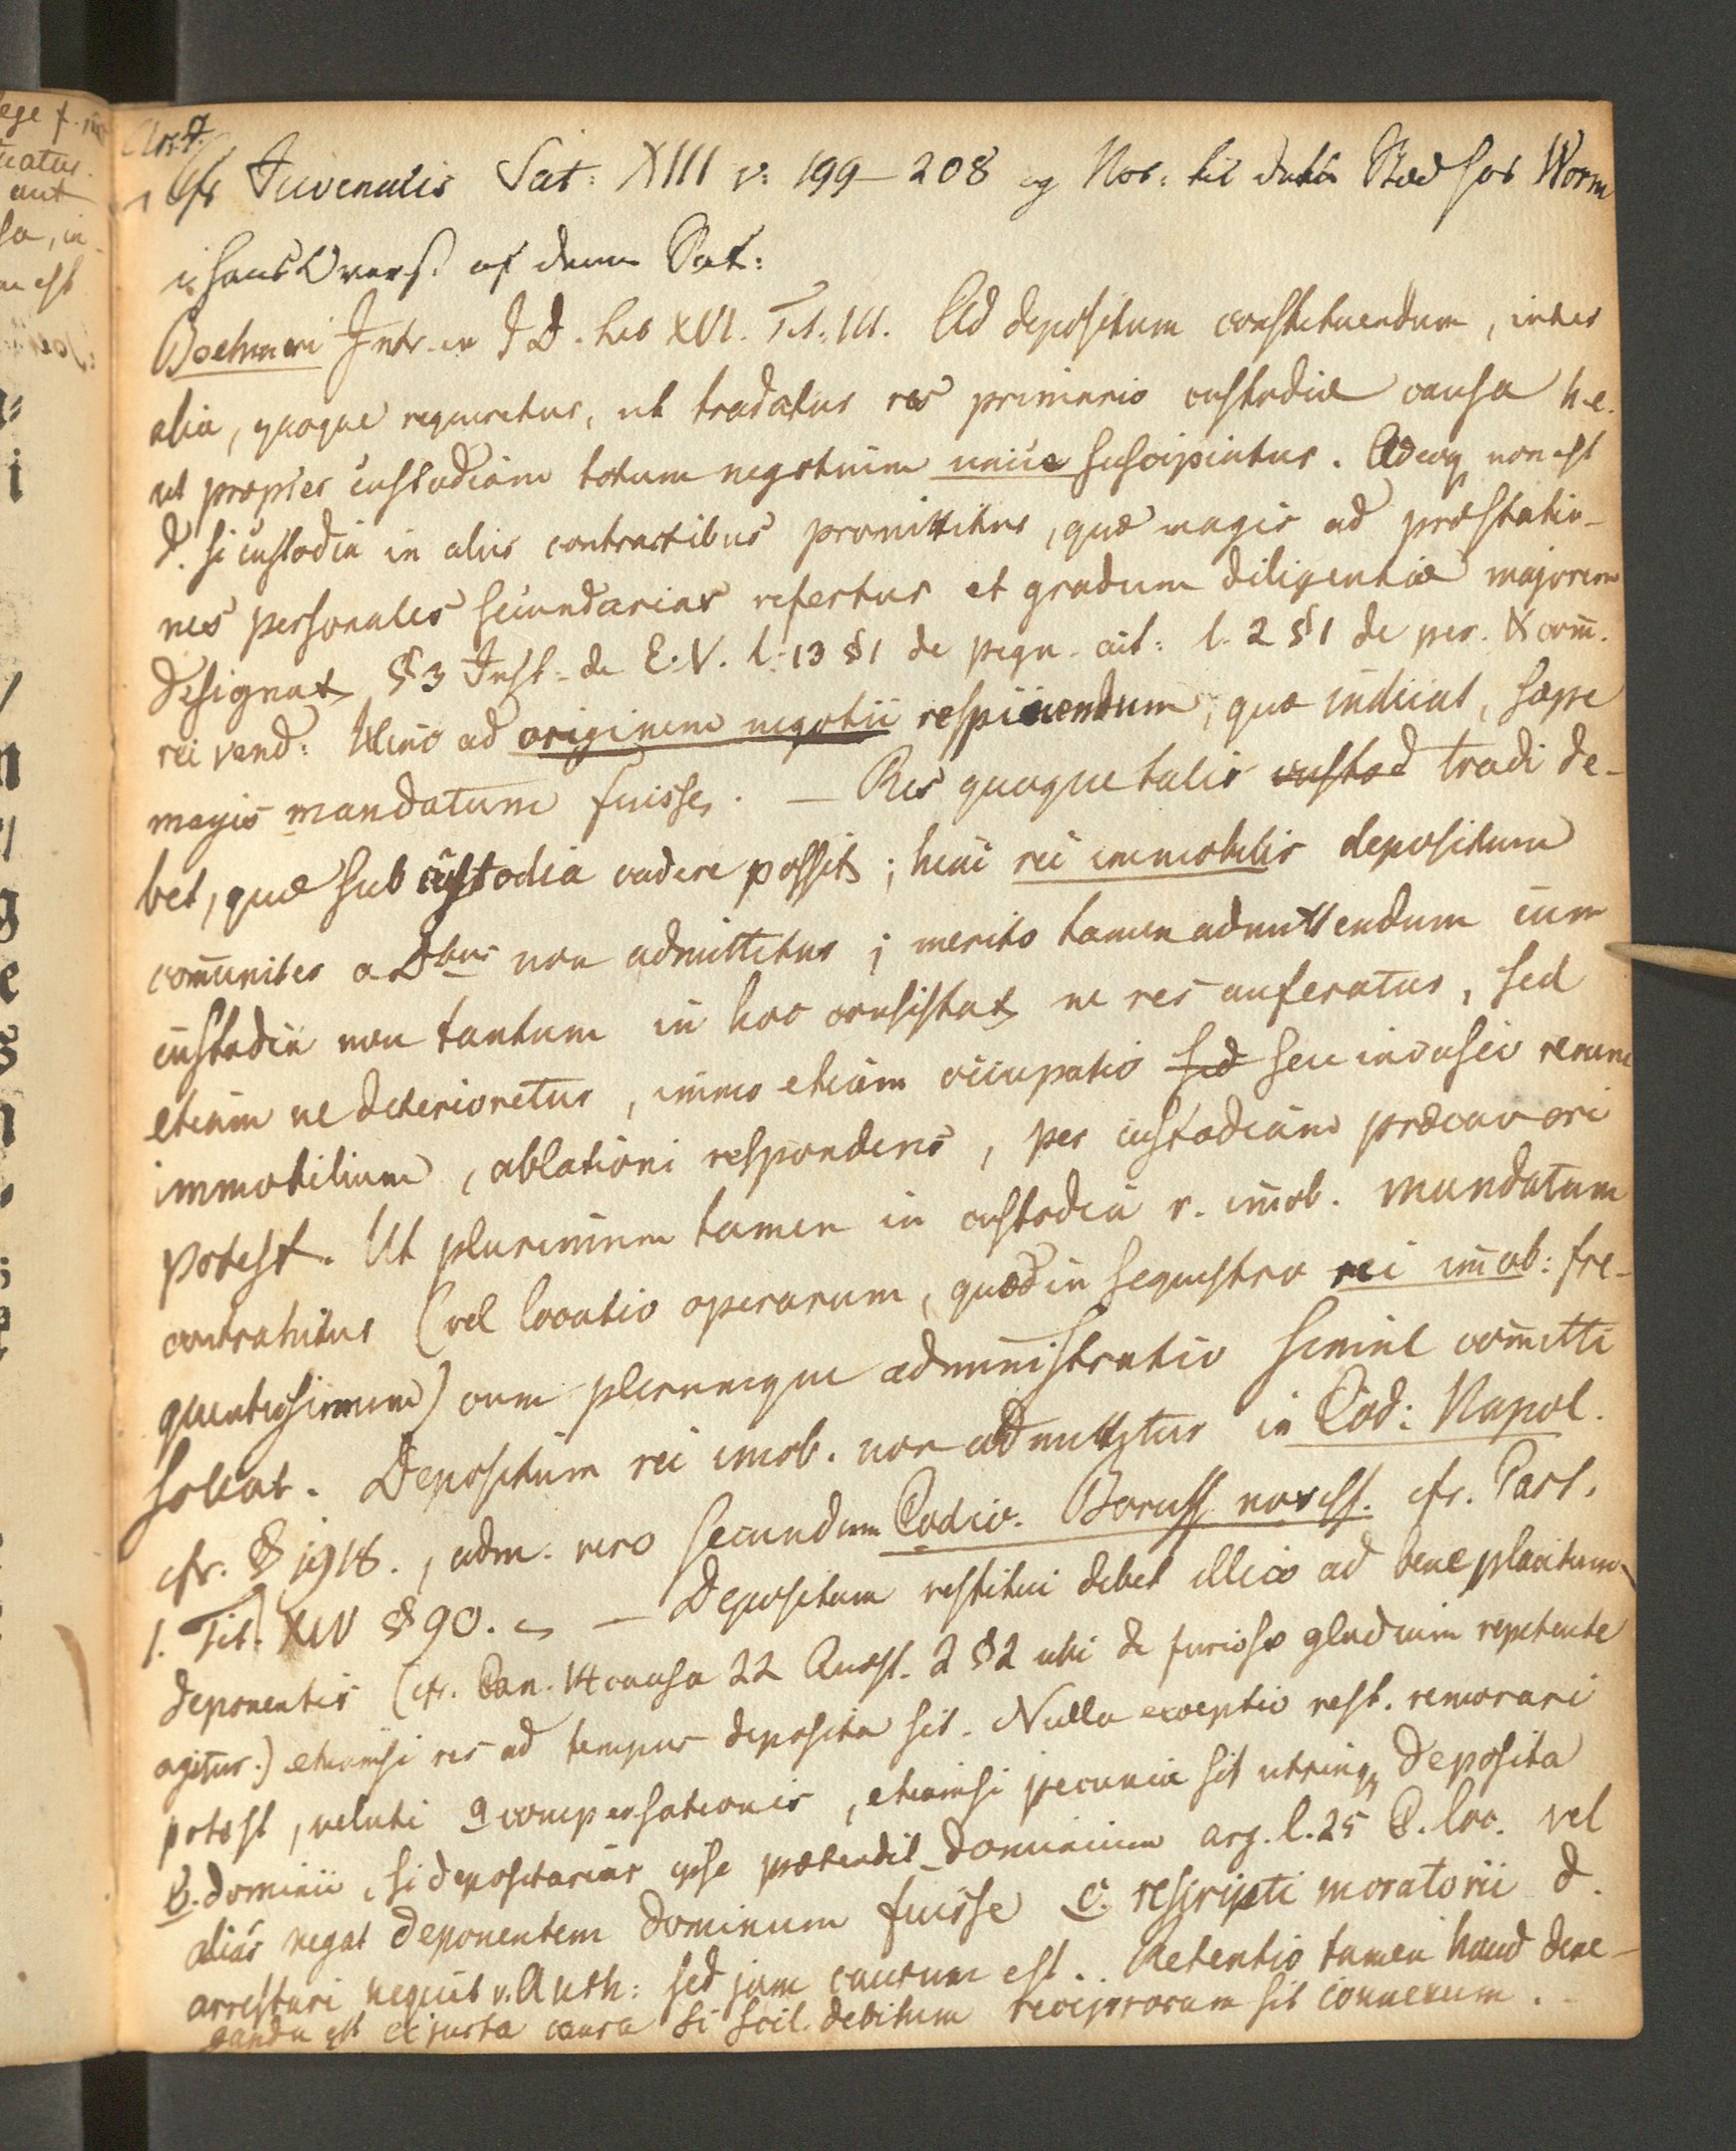 Cfr Juvenalis Sat: XIII v: 199–208 og Not: til dette Sted hos Worm
i hans Overs. af denne Sat:
Boehmeri Intr. in J D. Lib XVI. Tit: III. Ad depositum constituendum, inter
alia, quoque requiretur, ut tradatur res primario custodiæ causa h.e.
ut propter custodiam totum negotium unice suscipiatur. Adeoq non est
d. si custodia in aliis contractibus promittitur, quæ magis ad præstatio-
nes personales secundarias refertur et gradum diligentiæ majorem
designat §3 Inst. de E.V. l. 13 §1 de pign. act: l. 2 §1 de per. & com̄.
rei vend: Hinc ad originem negotii respiciendum, quæ indicat, sæpe
magis mandatum fuisse. — Res quoque talis custod tradi de-
bet, quæ sub custodia cadere possit; hinc rei immobilis depositum
com̄uniter a Dbus non admittitur; merito tamen admittendum cum
custodia non tantum in hoc consistat ne res auferatur, sed
etiam ne deterioretur, immo etiam occupatio sed seu invasio rerum
immobilium, ablationi respondens, per custodiam præcaveri
potest. Ut plurimum tamen in custodia r. im̄ob. mandatum
contrahitur (vel locatio operarum, quod in sequestro rei im̄ob: fre-
quentissimum) cum plerumque administratio simul com̄itti
soleat. Depositum rei imob. non admittitur in Cod: Napol.
cfr. § 1918., adm. vero secundum Codic. Boruss noviss. cfr. Part.
1. Tit. XIV § 90. — Depositum restitui debet illico ad beneplacitum
deponentis (cfr. Can. 14 causa 22 Quæst. 2 §2 ubi de furioso gladium repetente
agitur.) etiamsi res ad tempus deposita sit. Nulla exceptio rest. remorari
potest, veluti a compensationis, etiamsi pecunia sit utrinq deposita
b. dominii, si depositarius ipse prætendit dominium arg. l. 25 C. loc. vel
alias negat deponentem dominum fuisse c. rescripti moratorii d.
arrestari nequit v. Auth: sed jam cautum est. Retentio tamen haud dene-
ganda est ex justa causa si scil. debitum reciprocum sit connexum.